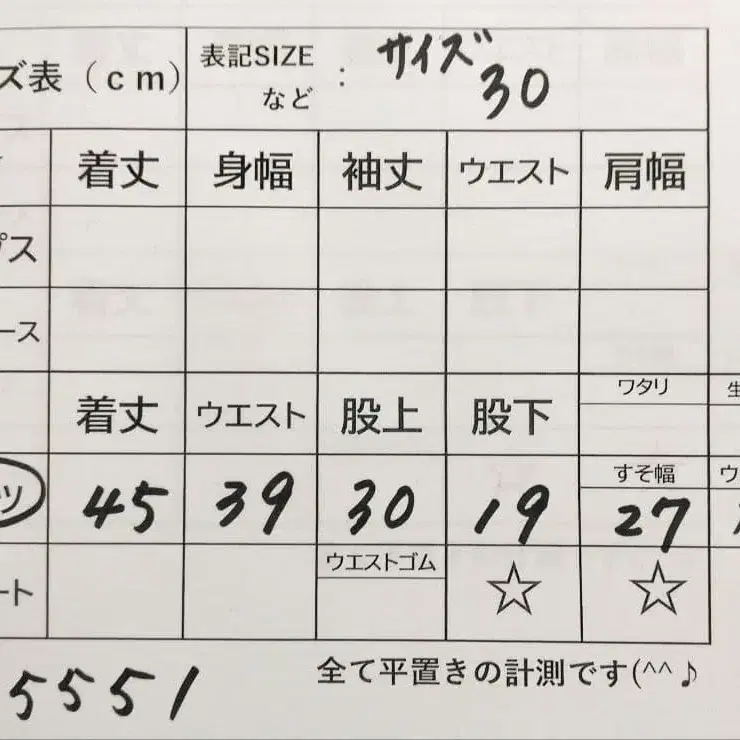 ズ表(cm) 表記SIZEなど : サイズ 30
着丈 身幅 袖丈 ウエスト 肩幅
プス
ース
着丈 ウエスト 股上 股下 ワタリ
ッ 45 39 30 19 すそ幅 27 ウ
ート ウエストゴム ☆ ☆
5551 全て平置きの計測です(^^♪